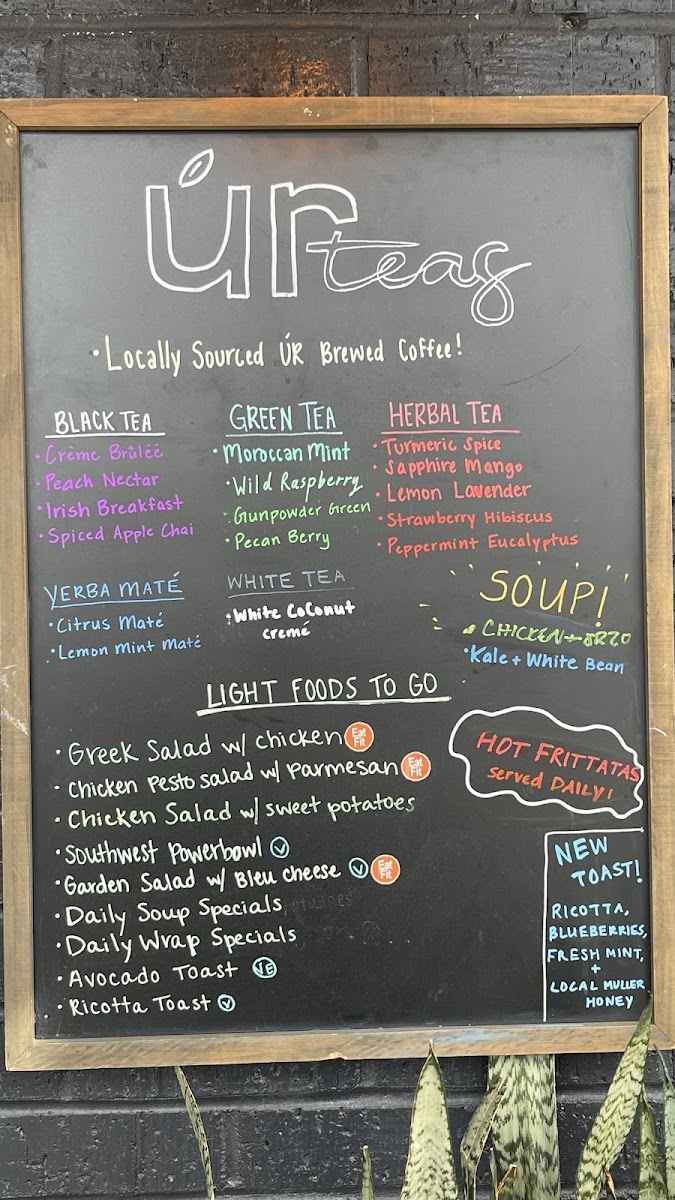 úr teas
• Locally Sourced ÚR Brewed Coffee!
BLACK TEA
• Crème Brûlëë
• Peach Nectar
• Irish Breakfast
• Spiced Apple Chai
GREEN TEA
• Moroccan Mint
• Wild Raspberry
• Gunpowder Green
• Pecan Berry
HERBAL TEA
• Turmeric Spice
• Sapphire Mango
• Lemon Lavender
• Strawberry Hibiscus
• Peppermint Eucalyptus
YERBA MATÉ
• Citrus Maté
• Lemon Mint Maté
WHITE TEA
• White Coconut
Cremé
SOUP!
• CHICKEN + ORZO
• Kale + White Bean
LIGHT FOODS TO GO
• Greek Salad w/ chicken Eat Fit
• Chicken Pesto salad w/ parmesan Eat Fit
• Chicken Salad w/ sweet potatoes
• Southwest Powerbowl V
• Garden Salad w/ Bleu cheese V Eat Fit
• Daily Soup Specials
• Daily Wrap Specials
• Avocado Toast VE
• Ricotta Toast V
HOT FRITTATAS
served DAILY!
NEW
TOAST!
RICOTTA,
BLUEBERRIES,
FRESH MINT,
+
LOCAL MULLER
HONEY